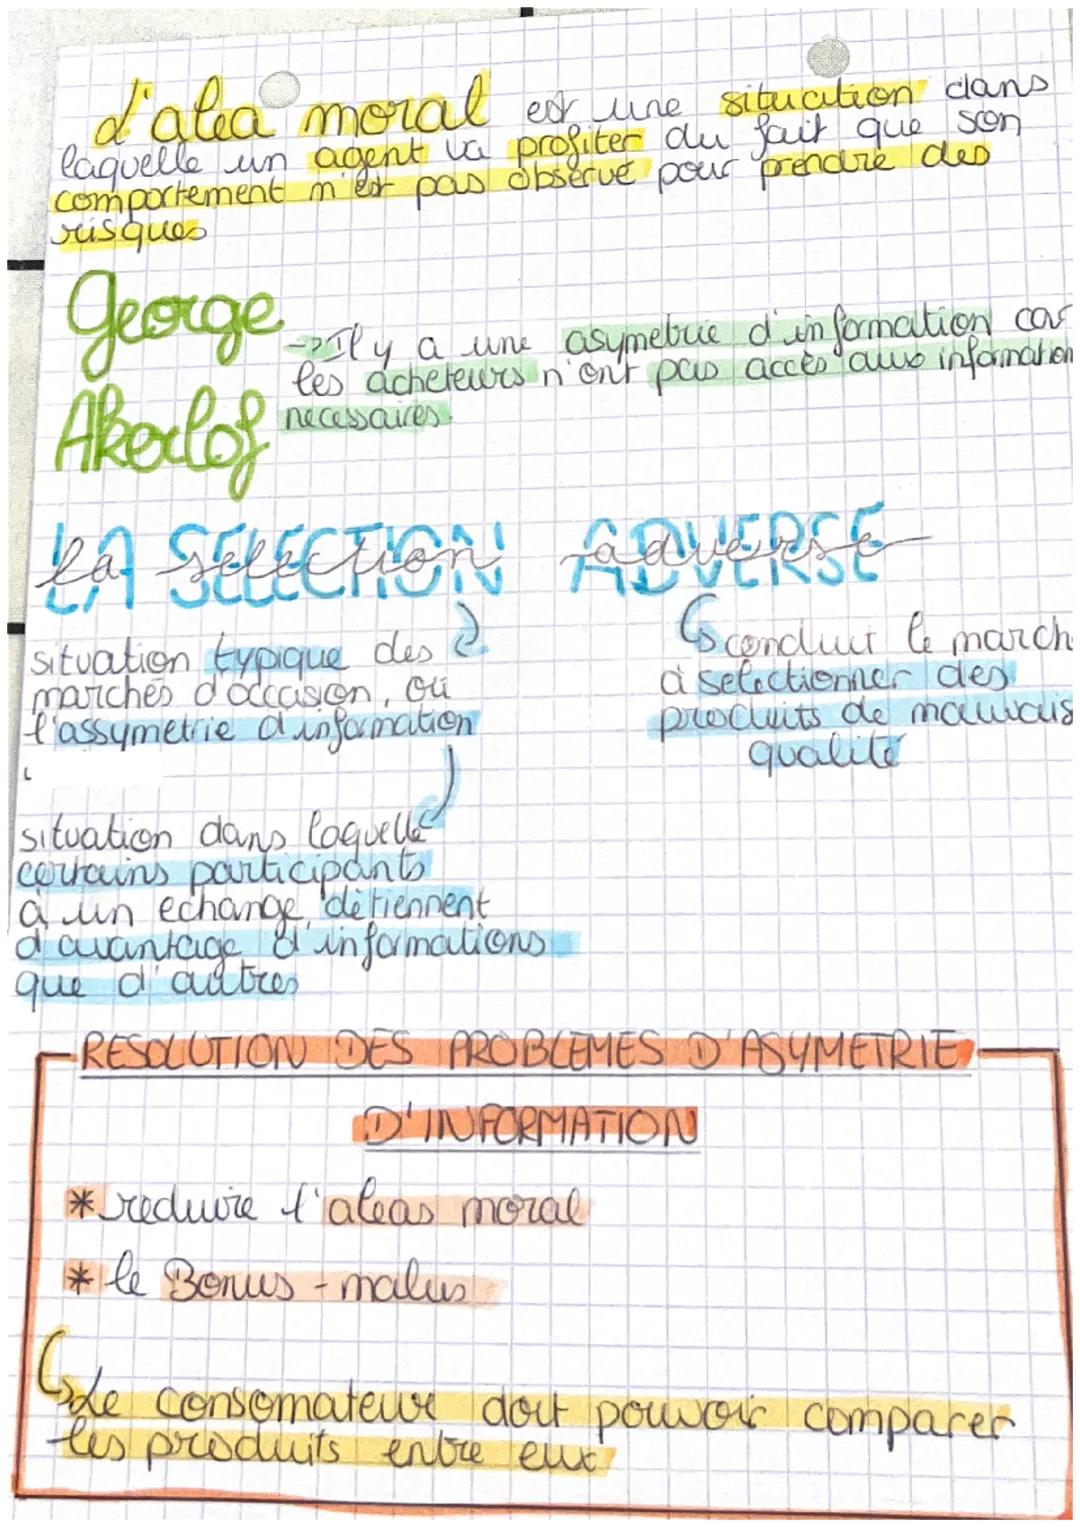 L'alea moral est une situation dans
laquelle un agent va profiter du fait que son
comportement n'est pas observé pour prendre des
risques
George
Akerlof
->Il y a une asymetrie d'information car
les acheteurs n'ont pas accès aux information
necessaires.
LA SELECTION ADVERSE
la selection adverse
situation typique des
marchés d'occasion, où
l'assymetrie d'information
conduit le march
à selectionner des
produits de mauvais
qualité
situation dans laquelle
certains participants
à un echange, détiennent
d'avantage d'informations
que d'autres
RESOLUTION DES PROBLEMES D'ASYMETRIE
D'INFORMATION
* reduire l'aleas moral
* le Bonus - malus
Le consomateur doit pouvoir comparer
les produits entre eux